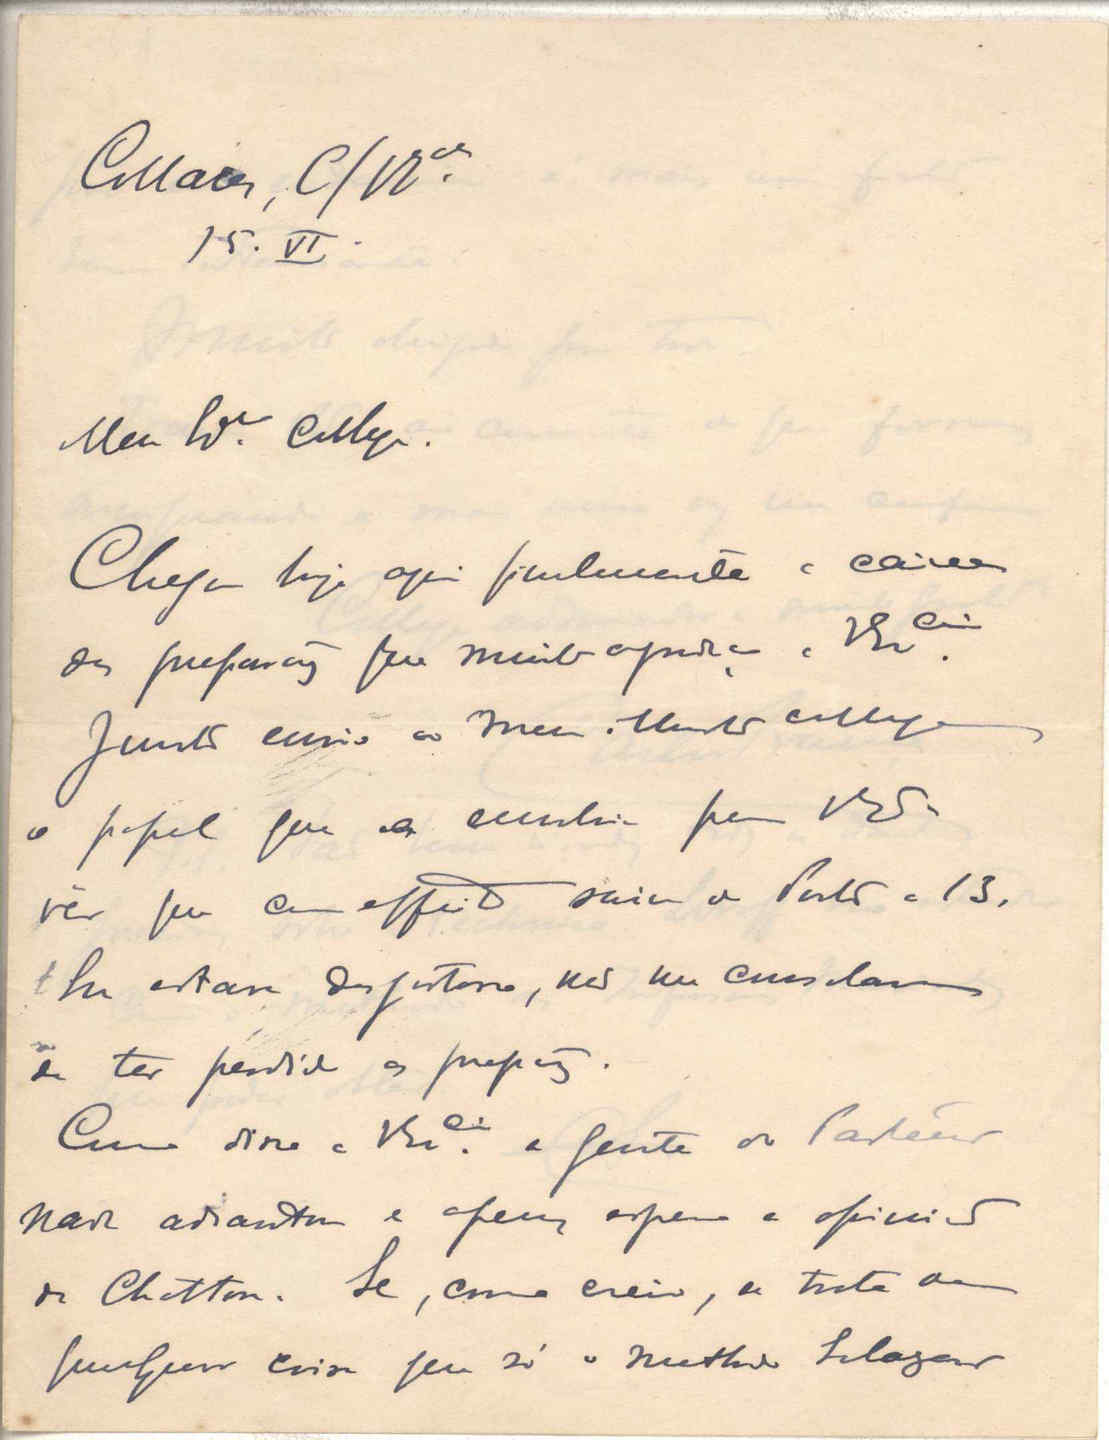 Collares, C/V.
15. VI.
Meu Ill. Collega.
Chegou hoje aqui finalmente a caixa
das preparações que muito agradeço a V. Ex.cia
Junto envio ao meu illustre collega
o papel que as envolvia para
vêr que com effeito saiu do Porto a 13.
estava, não me consolava
de ter perdido as preparações.
Como disse a V. Ex.cia a gente do Pasteur
nada adiantou e apenas espera a opinião
de Chatton. Se, como creio, se trata de
qualquer coisa que só o methodo Salazar